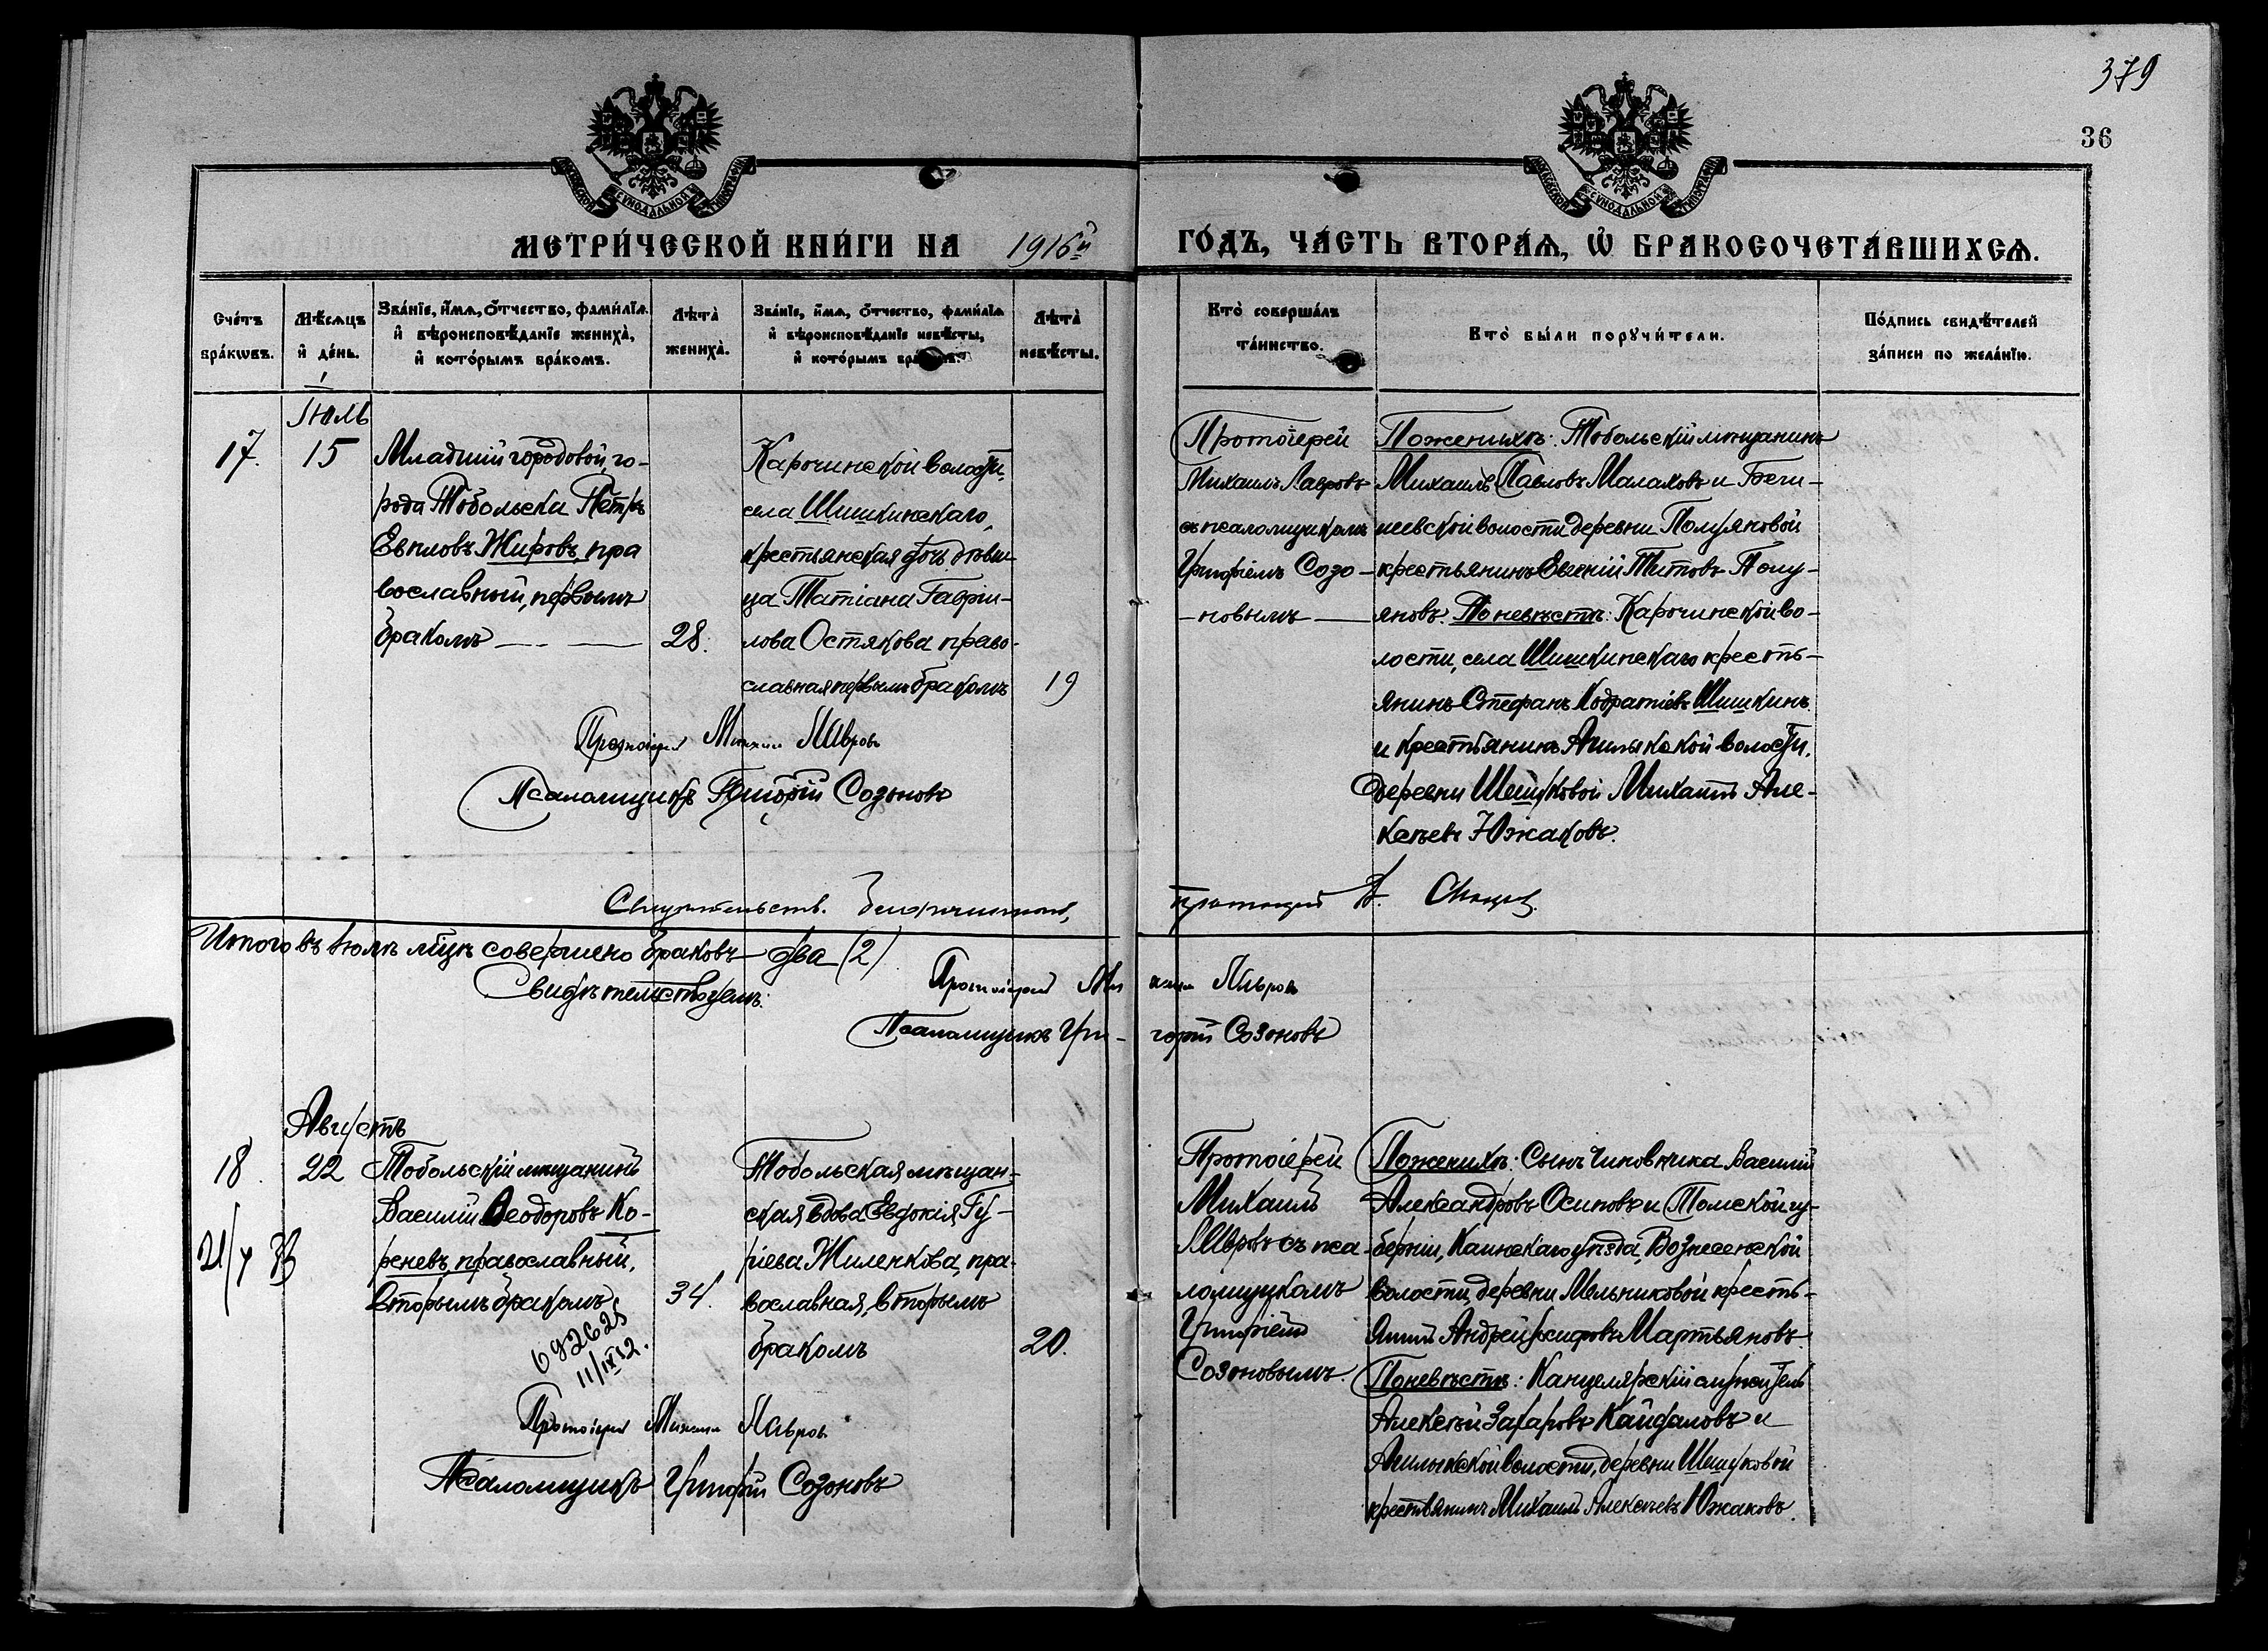 379
36
МЕТРИ́ЧЕСКОЙ КНИ́ГИ НА 1916й ГО́ДЪ, ЧА́СТЬ ВТОРА́Ѧ, Ѡ҆ БРАКОСОЧЕТА́ВШИХСѦ.
Сче́тъ бра́кѡвъ.
Мѣ́сѧцъ и҆ де́нь.
Зва́нїе, и҆́мѧ, ѻ҆́тчество, фами́лїѧ
и҆ вѣроисповѣ́данїе жениха̀,
и҆ кото́рымъ бра́комъ.
Лѣта̀ жениха̀.
Зва́нїе, и҆́мѧ, ѻ҆́тчество, фами́лїѧ
и҆ вѣроисповѣ́данїе невѣ́сты,
и҆ кото́рымъ бра́комъ.
Лѣта̀ невѣ́сты.
Кто̀ соверша́лъ
та́инство.
Кто̀ бы́ли порꙋчи́тели.
По́дпись свидѣ́телей
за́писи по жела́нїю.
Іюль
17. 15
Младшій городовой, го-
рода Тобольска Петръ
Евпловъ Жировъ, пра
вославный, первымъ
бракомъ
28.
Карачинской волости,
села Шишкинскаго,
крестьянская дочь дѣви-
ца Татіана Гаврiи-
лова Остякова право-
славная первымъ бракомъ
19
Протоіерей
Михаилъ Лавровъ
съ псаломщикомъ
Григоріемъ Созо-
-новымъ
По женихѣ: Тобольскій мѣщанинъ
Михаилъ Павловъ Малаховъ и Беги-
шевской волости деревни Полуяновой
крестьянинъ Евгеній Титовъ Полу-
яновъ. По невѣстѣ: Карачинской во-
лости, села Шишкинскаго кресть-
янинъ Стефанъ Кодратіевъ Шишкинъ
и крестьянинъ Ачлыкской волости,
деревни Шешуковой Михаилъ Але-
ксѣевъ Южаковъ.
Протоіерей Михаилъ Лавровъ
Псаломщикъ Григорій Созоновъ
протоіерей
Итого въ Іюлѣ мѣцѣ совершено браковъ два (2)
Свидѣтельствуемъ:
Протоіерей Михаилъ Лавровъ
Псаломщикъ Гри- горій Созоновъ
Августъ
18. 22
Тобольскій мѣщанинъ
Василій Ѳеодоровъ Ко-
реневъ, православный,
вторымъ бракомъ
34.
Тобольская мѣщан-
ская вдова Евдокія Гу-
ріева Жиленкова, пра-
вославная, вторымъ
бракомъ
20.
692625
11/IX 12.
Протоіерей
Михаилъ
Лавровъ съ пса-
ломщикомъ
Григоріемъ
Созоновымъ.
По женихѣ: Сынъ чиновника Василій
Александровъ Осиповъ и Томской гу-
берніи, Каинскаго уѣзда, Вознесенской
волости, деревни Мельниковой кресть-
янинъ Андрей Іосифовъ Мартьяновъ.
По невѣстѣ: Канцелярскій служитель
Алексѣй Захаровъ Кайдаловъ и
Ачлыкской волости, деревни Шешуковой
крестьянинъ Михаилъ Алексѣевъ Южаковъ.
Протоіерей Михаилъ Лавровъ
Псаломщикъ Григорій Созоновъ